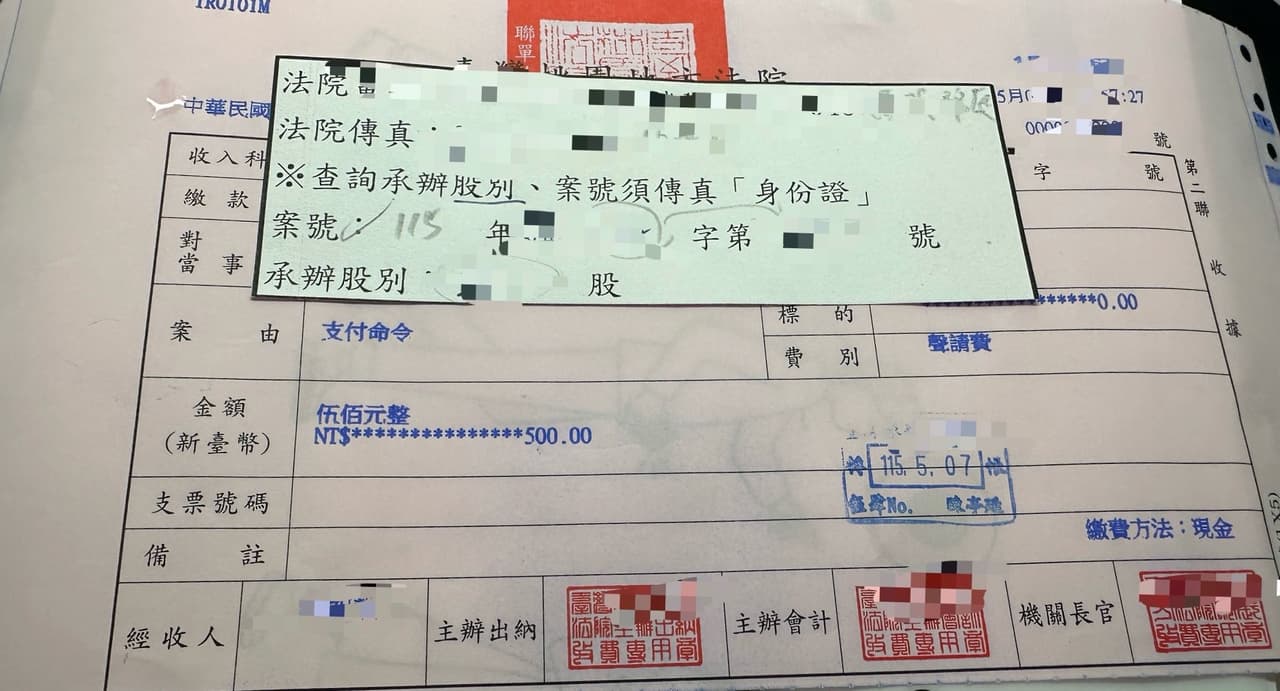 TR0101M
聯單
灣桃園地方法院
中華民國
5月0
7:27
0000
號
法院
法院傳真:
※查詢承辦股別、案號須傳真「身份證」
案號: 115 年 字第 號
承辦股別: 股
收入科
字 號
繳款
對
當事
第二聯
收據
標的
*****************0.00
案由
支付命令
費別
聲請費
金額
(新臺幣)
伍佰元整
NT$***************500.00
115. 5. 07
No.
支票號碼
繳費方法：現金
備註
經收人
主辦出納
主辦會計
機關長官
收費專用章
收費專用章
收費專用章